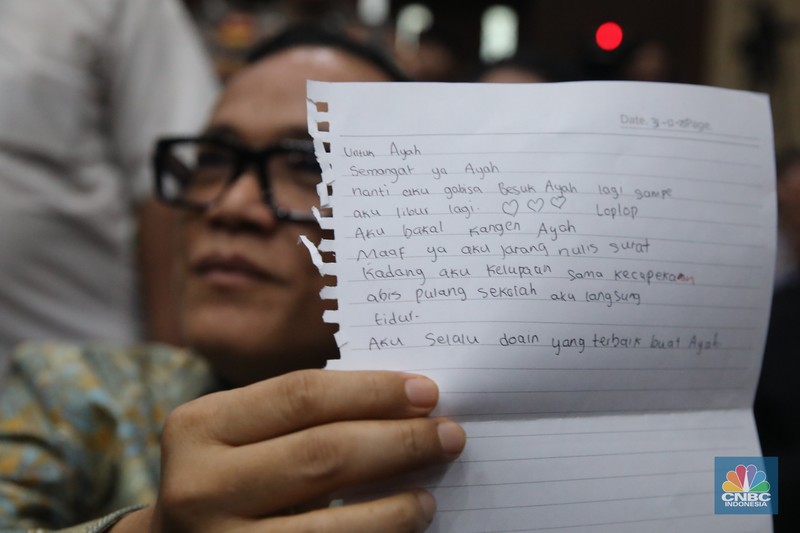 Date. Page.
Untuk Ayah
Semangat ya Ayah
nanti aku gabisa Besuk Ayah lagi sampe
aku libur lagi. ♡♡♡ Loplop
Aku bakal kangen Ayah
Maaf ya aku jarang nulis surat
Kadang aku kelupaan sama kecapekan
abis pulang sekolah aku langsung
tidur.
Aku selalu doain yang terbaik buat Ayah
CNBC
INDONESIA